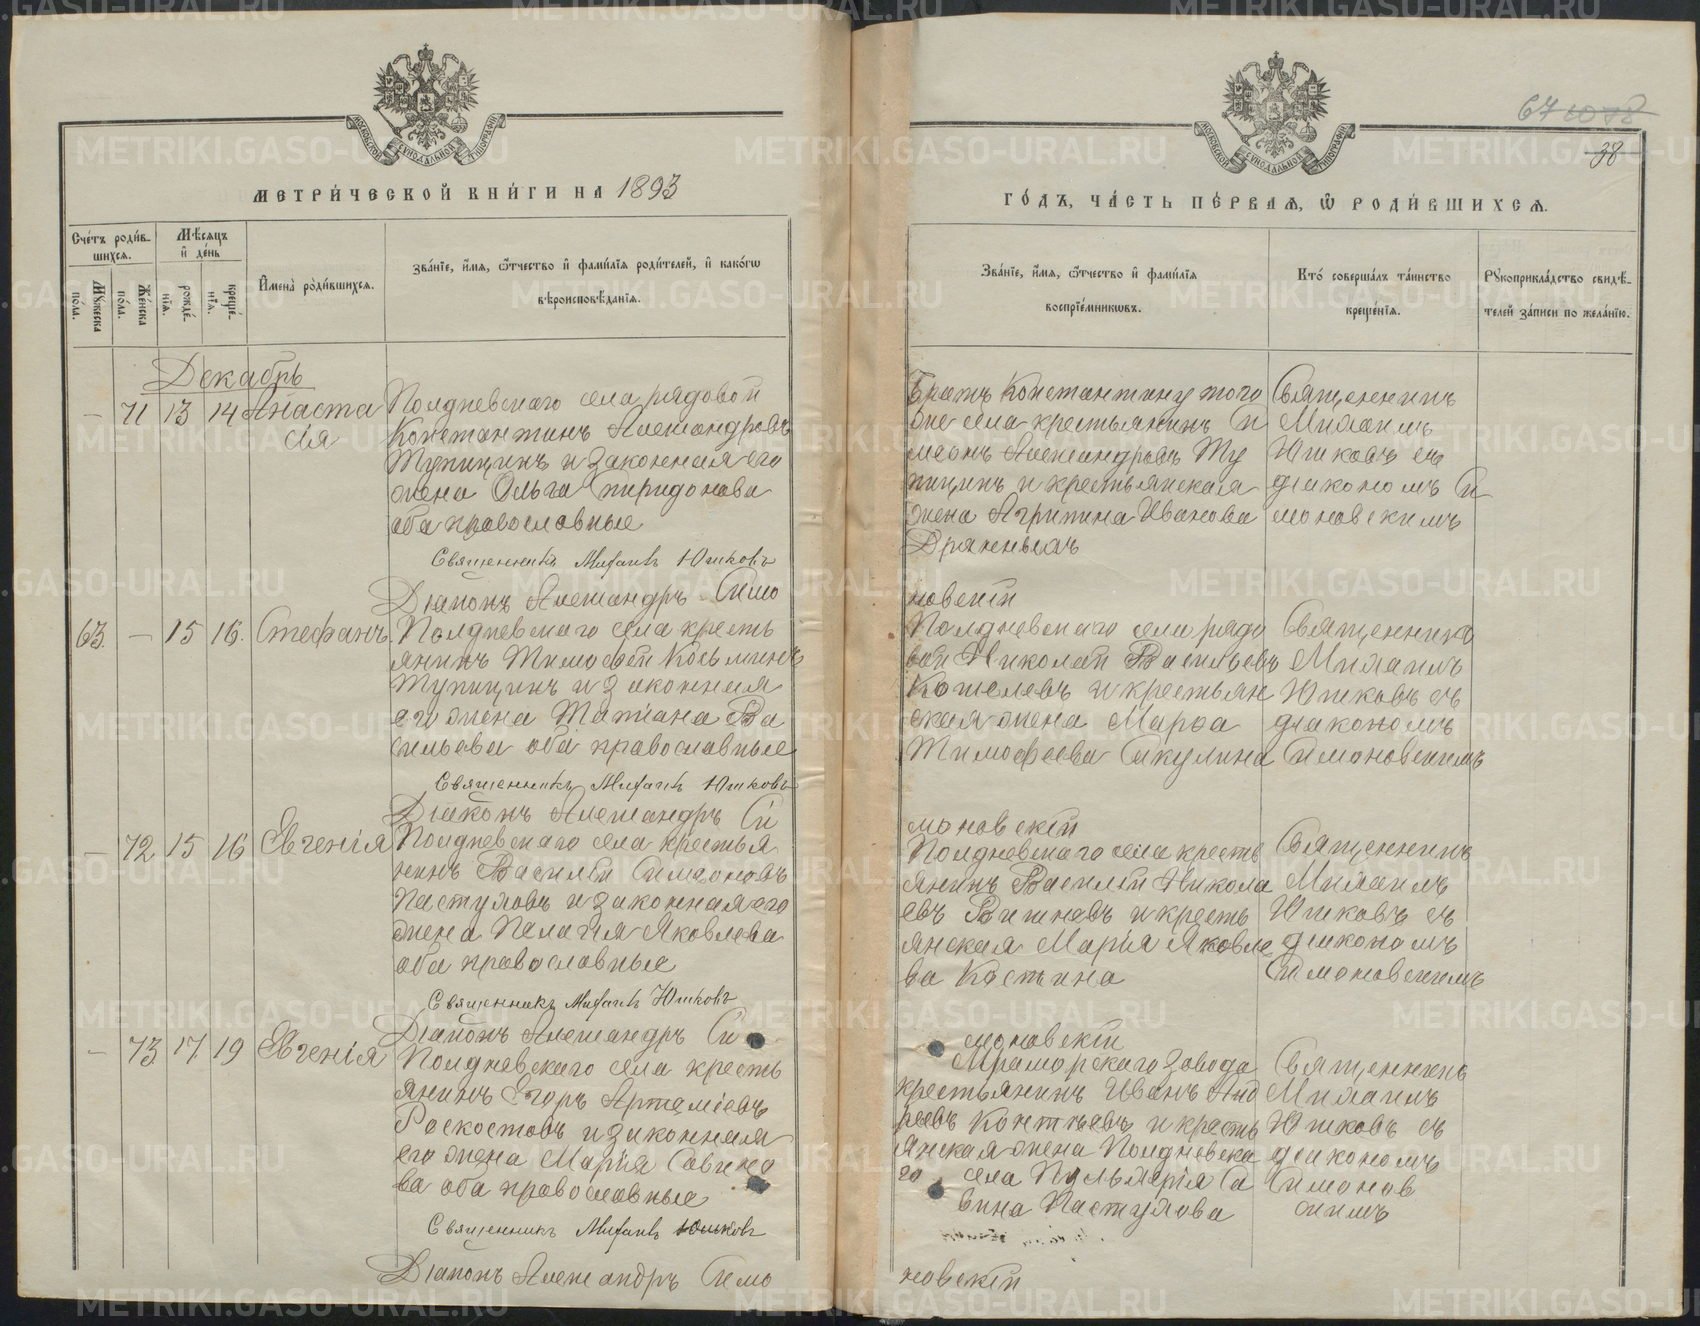 МЕТРИ́ЧЕСКОЙ КНИ́ГИ НА 1893
Сче́тъ роди́в-
шихся.
Мѣсяцъ
и҆ де́нь
Мꙋжеска
по́ла.
Же́нска
по́ла.
рожде́-
нїя.
креще́-
нїя.
И҆мена̀ роди́вшихся.
Зва́нїе, и҆́мя, ѻ҆́тчество и҆ фами́лїя роди́телей, и҆ како́гѡ
вѣроисповѣ́данїя.
Декабрь
— 71 13 14 Анаста
сія
Полдневскаго села рядовой
Константинъ Александровъ
Тупицинъ и законная его
жена Ольга Спиридонова
оба православные
Священникъ Михаилъ Юшковъ
Діаконъ Александръ Симо
63. — 15 16. Стефанъ
Полдневскаго села кресть
янинъ Тимофей Косьминъ
Тупицинъ и законная
его жена Татіана Ва
сильева оба православные
Священникъ Михаилъ Юшковъ
Діаконъ Александръ Си
— 72 15 16 Евгенія
Полдневскаго села крестья
нинъ Василій Симеоновъ
Пастуховъ и законная его
жена Пелагія Яковлева
оба православные
Священникъ Михаилъ Юшковъ
Діаконъ Александръ Си
— 73 17 19 Евгенія
Полдневскаго села кресть
янинъ Егоръ Артеміевъ
Роскостовъ и законная
его жена Марія Савино
ва оба православные
Священникъ Михаилъ Юшковъ
Діаконъ Александръ Симо
67
38
ГО́ДЪ, ЧА́СТЬ ПЕ́РВАЯ, Ѽ РОДИ́ВШИХСЯ.
Зва́нїе, и҆́мя, ѻ҆́тчество и҆ фами́лїя
воспрїе́мникѡвъ.
Кто̀ соверша́лъ та́инство
креще́нїя.
Рꙋкоприкла́дство свидѣ́-
телей за́писи по жела́нїю.
Братъ Константину того
же села крестьянинъ Си
меонъ Александровъ Ту
пицинъ и крестьянская
жена Агрипина Иванова
Дряхлыхъ
Священникъ
Михаилъ
Юшковъ съ
діакономъ Си
моновскимъ
новскій
Полдневскаго села рядо
вой Николай Васильевъ
Кошелевъ и крестьян
ская жена Марѳа
Тимофеева Сикулина
Священникъ
Михаилъ
Юшковъ съ
діакономъ
Симоновскимъ
моновскій
Полдневскаго села кресть
янинъ Василій Никола
евъ Вишневъ и кресть
янская Марія Яковле
ва Костина
Священникъ
Михаилъ
Юшковъ съ
діакономъ
Симоновскимъ
моновскій
Мраморскаго завода
крестьянинъ Иванъ Анд
реевъ Коптевъ и кресть
янская жена Полдневска
го села Пульхерія Са
вина Пастухова
Священникъ
Михаилъ
Юшковъ съ
діакономъ
Симонов
скимъ
новскій
METRIKI.GASO-URAL.RU